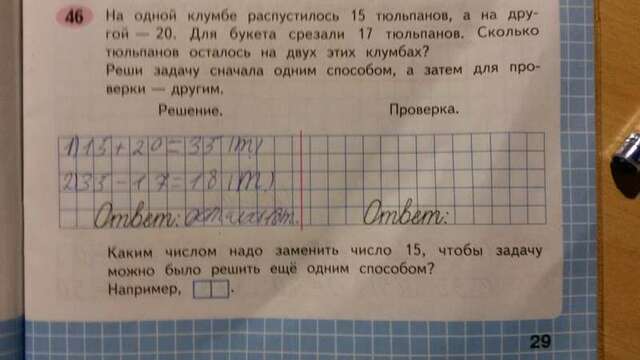 46 На одной клумбе распустилось 15 тюльпанов, а на дру-
гой — 20. Для букета срезали 17 тюльпанов. Сколько
тюльпанов осталось на двух этих клумбах?
Реши задачу сначала одним способом, а затем для про-
верки — другим.
Решение. Проверка.
1) 15 + 20 = 35 (т)
2) 35 - 17 = 18 (т.)
Ответ: 18т. Ответ:
Каким числом надо заменить число 15, чтобы задачу
можно было решить ещё одним способом?
Например, .
29